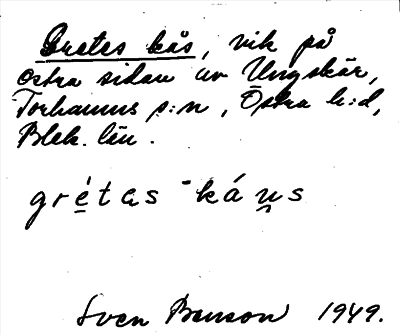 Gretes kås, vik på
östra sidan av Ungskär,
Torhamns s:n, Östra h:d,
Blek. län.
gré̱tas -káṵs
Sven Benson 1949.